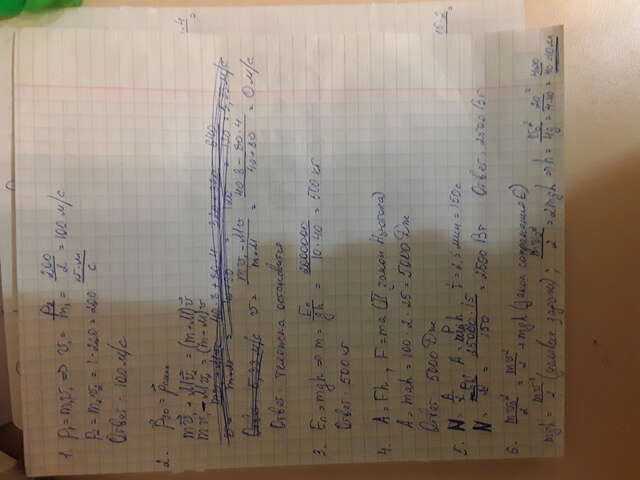 1. P₁ = m₁v₁ ⇒ v₁ = P₂/m₁ = 200/2 = 100 м/с
P₂ = m₂v₂ = 1·200 = 200
Ответ: 100 м/с
2.
mv₁ - Mv₂ = (m+M)v
v = (mv₁ - Mv₂)/(m+M) = (40·8 - 80·4)/(40+80) = 0 м/с
Ответ: тележка остановится
3. Eп = mgh ⇒ m = Eп/gh = /10·40 = 500 кг
Ответ: 500 кг
4. A = Fh, F = ma (II закон Ньютона)
A = mah = 100·2·25 = 5000 Дж
Ответ: 5000 Дж
5. N = A/t A = mgh t = 2,5 мин = 150 с
N = = 25000·15/150 = 2500 Вт Ответ: 2500 Вт
6. mv₀²/2 = mv²/2 + mgh (закон сохранения E)
mgh = mv²/2 (условие задачи), mv₀²/2 = 2mgh ⇒ h = v₀²/4g = 20²/4·10 = 400/40 = 10 м